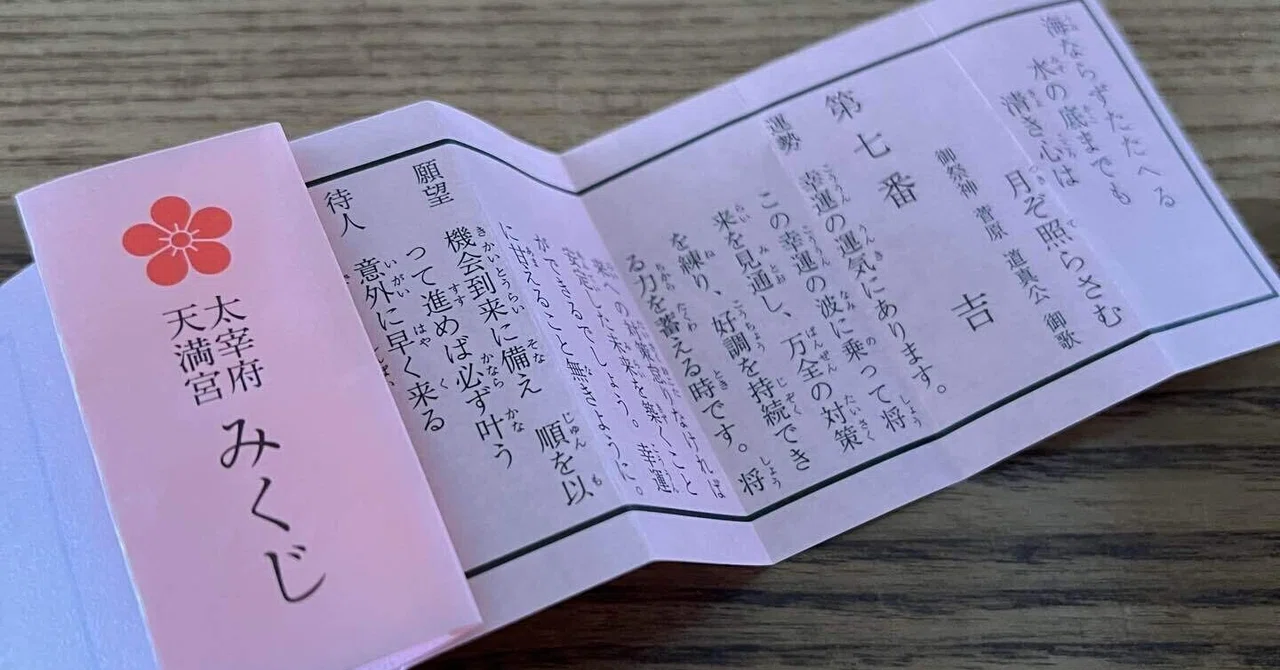 海ならずたたへる
水の底までも
清き心は
月ぞ照らさむ
御祭神 菅原 道真公 御歌
第七番 吉
運勢 幸運の運気にあります。
この幸運の波に乗って将
来を見通し、万全の対策
を練り、好調を持続でき
る力を蓄える時です。将
来への対策怠りなければ
安定した未来を築くこと
ができるでしょう。幸運
に甘えること無きように。
願望 機会到来に備え 順を以
って進めば必ず叶う
待人 意外に早く来る
太宰府
天満宮
みくじ